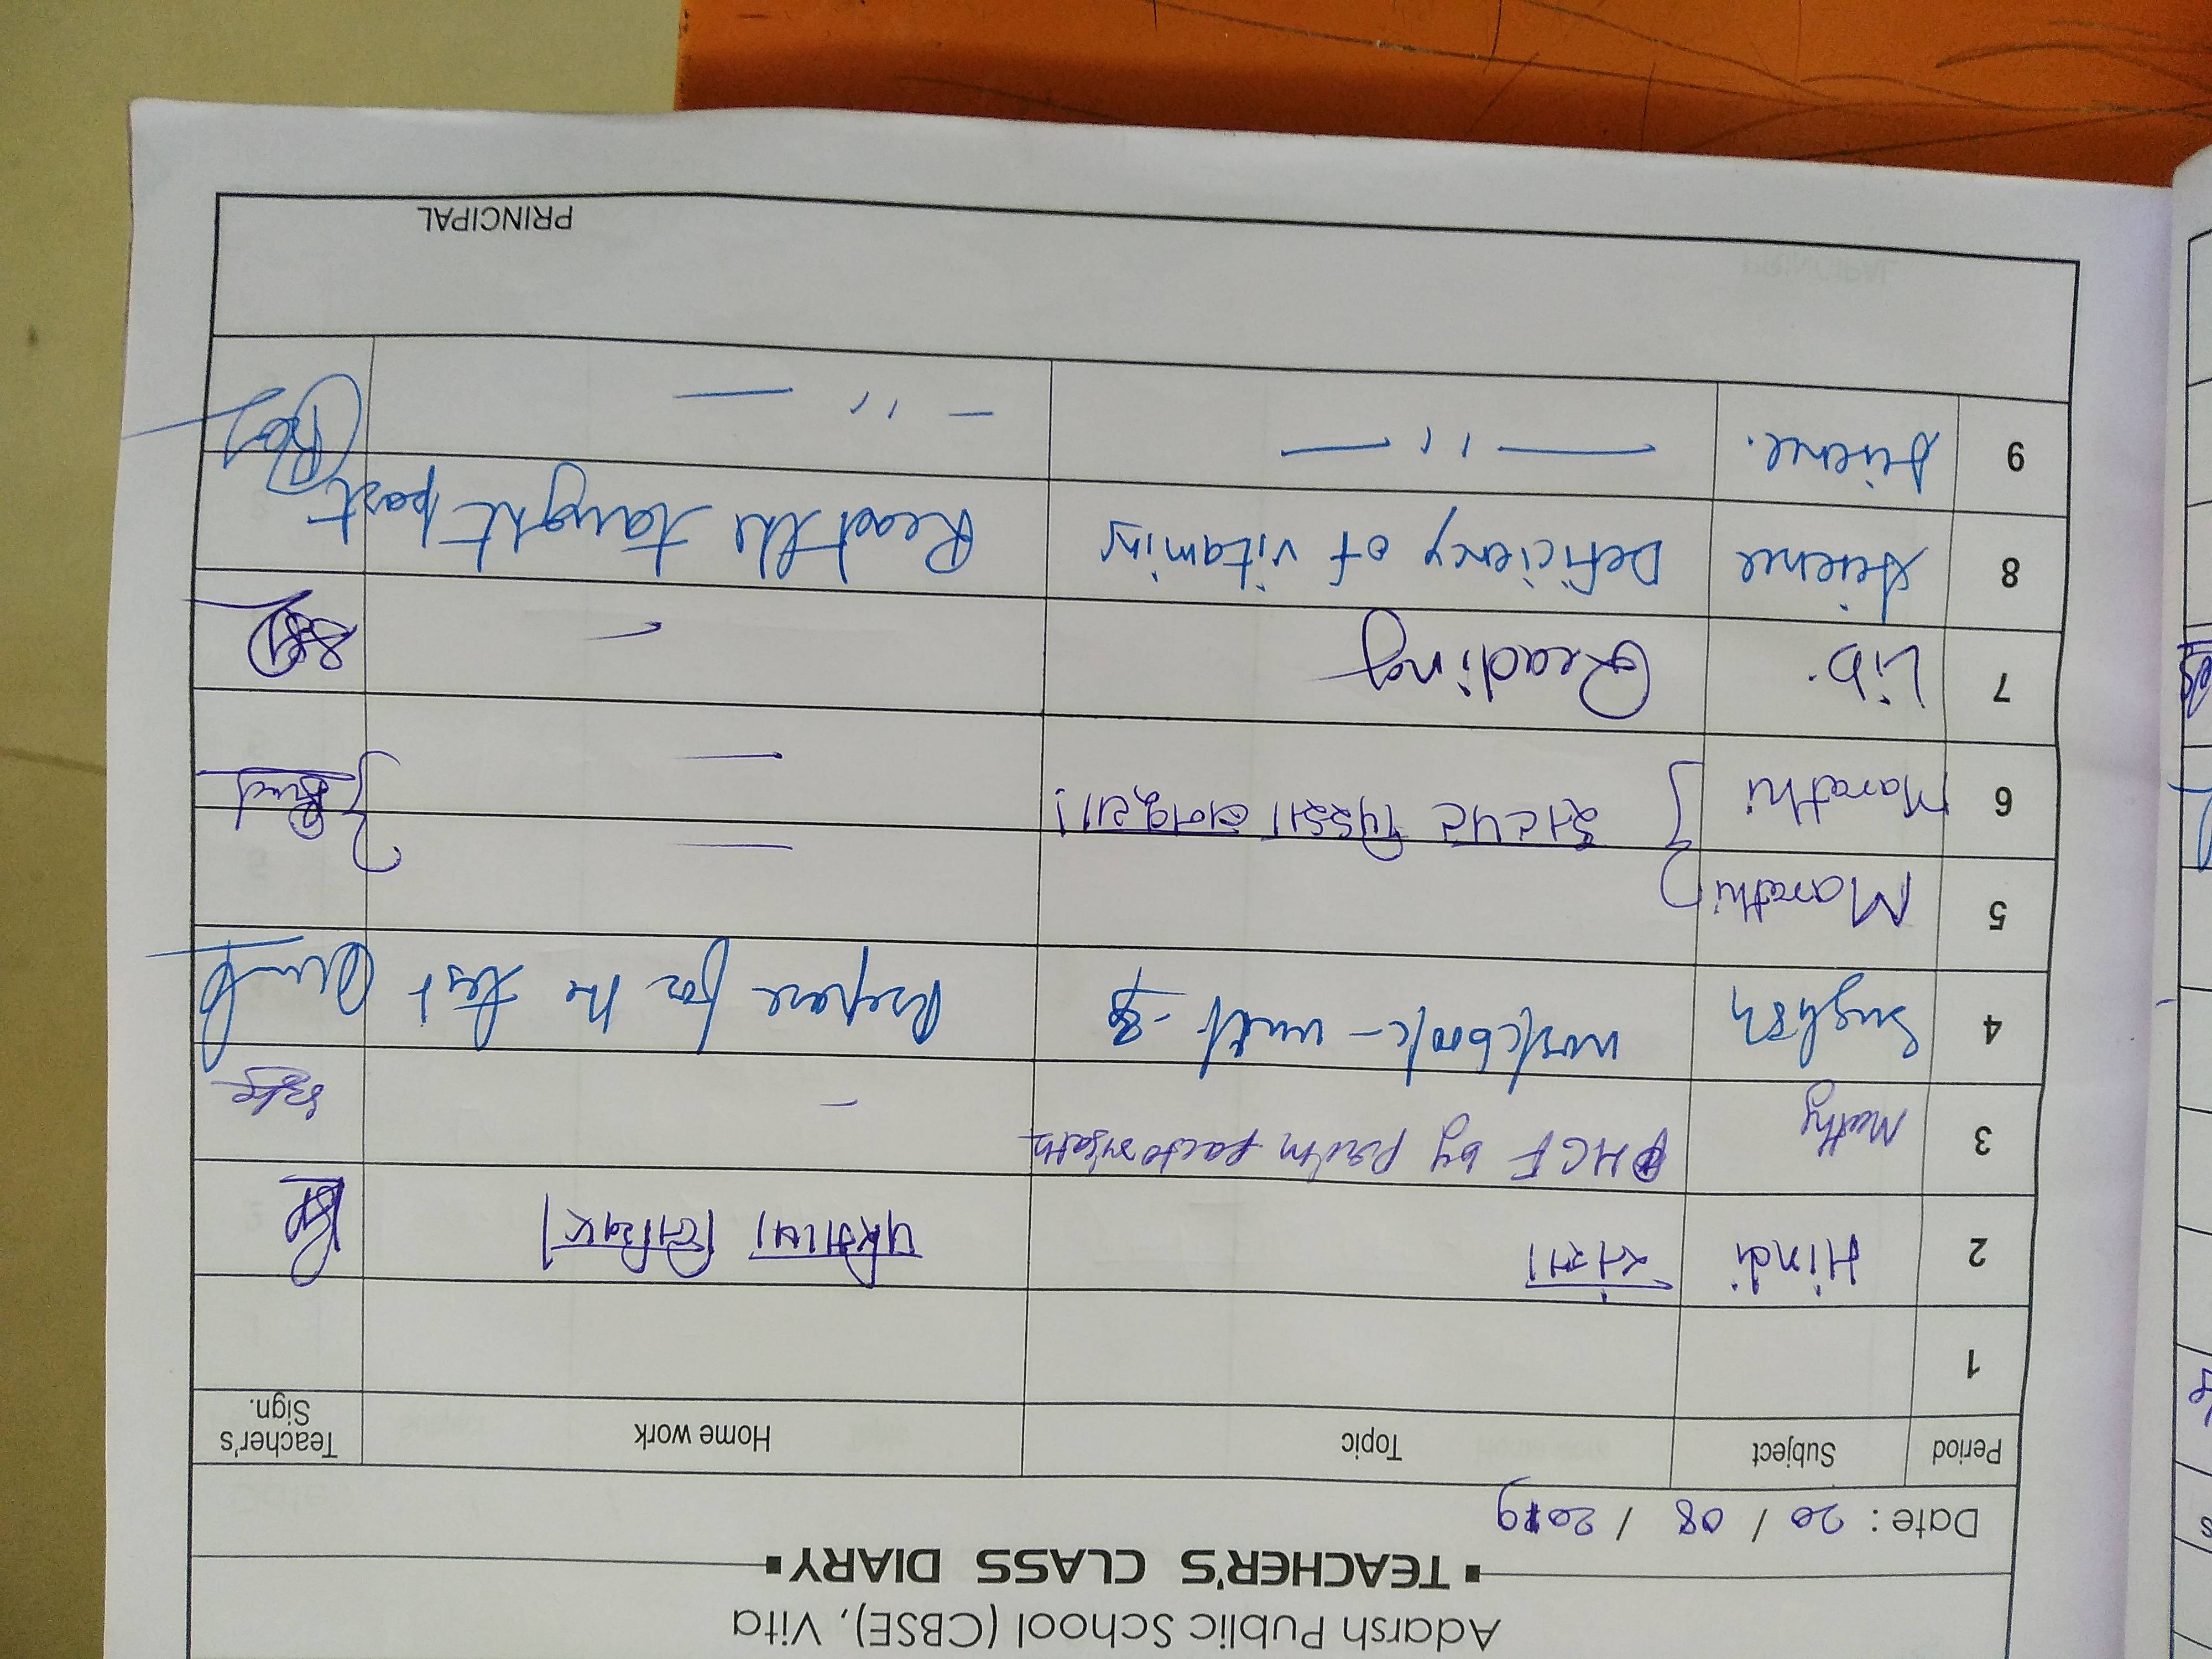 Adarsh Public School (CBSE), Vita
▪ TEACHER'S CLASS DIARY ▪
Date : 20 / 08 / 2019
Period Subject Topic Home work Teacher's Sign.
1
2 Hindi संज्ञा
3 HCF by
4 English workbook - unit - 8 Prepare for the test
5 Marathi
6 Marathi
7 Lib. Reading
8 Science Deficiency of vitamins Read the taught part
9 Science. — ,, — — ,, —
PRINCIPAL